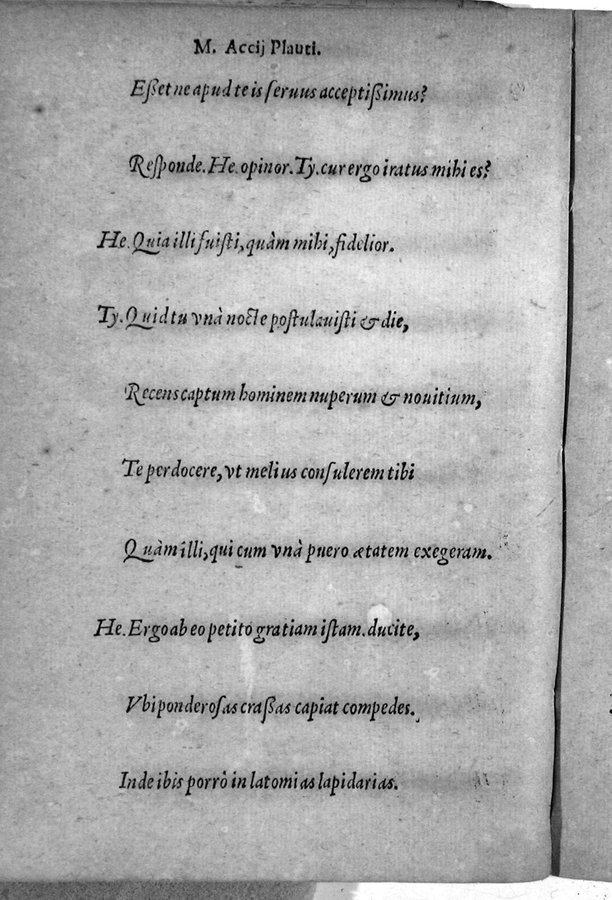 M. Accij Plauti.
Eßet ne apud te is ſeruus acceptißimus?
Reſponde. He. opinor. Ty. cur ergo iratus mihi es?
He. Quia illi fuiſti, quàm mihi, fidelior.
Ty. Quid tu vnà nocte poſtulauiſti & die,
Recens captum hominem nuperum & nouitium,
Te perdocere, vt melius conſulerem tibi
Quàm illi, qui cum vnà puero ætatem exegeram.
He. Ergo ab eo petito gratiam iſtam. ducite,
Vbi ponderoſas craßas capiat compedes.
Inde ibis porrò in latomias lapidarias.